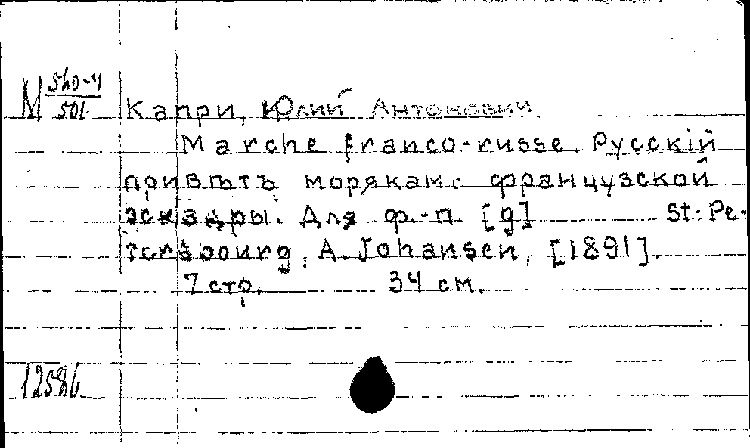 М 560-4
501
Капри, Юлий Антонович.
Marche franco-russe. Русскій
привѣтъ морякам. французской
эскадры. Для ф.-п. [g] St.-Pe-
tersbourg, A. Johansen, [1891].
7 стр. 34 см.
12586